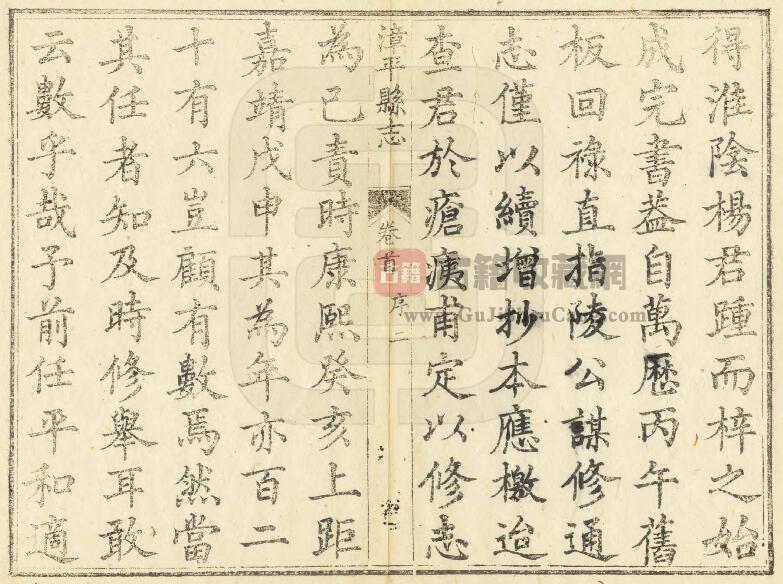 得淮陰楊君踵而梓之始
成完書葢自萬歷丙午舊
板回祿直指陵公謀修通
志僅以續增抄本應檄迨
查君於瘡痍甫定以修志
漳平縣志 卷首 序 二
為己責時康熙癸亥上距
嘉靖戊申其為年亦百二
十有六豈顧有數焉然當
其任者知及時修舉耳敢
云數乎哉予前任平和適
古籍
古籍收藏網
www.GuJiShouCang.com